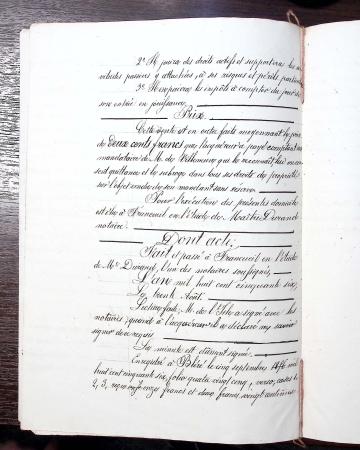 2° Il jouira des droits actifs et supportera les ser
vitudes passives y attachées, à ses risques et périls
3° Il en paiera les impôts à compter du jour de
son entrée en jouissance.
Prix.
Cette vente est en outre faite moyennant le prix
de deux cents francs que l'acquéreur a payé comptant au
mandataire de M. de qui le reconnaît, lui en con
sent quittance et le subroge dans tous ses droits de propriété
sur l'objet vendu de son mandant sans réserve.
Pour l'exécution des présentes domicile
est élu à Francueil en l'étude de Maître Durand
notaire.
Dont acte;
Fait et passé à Francueil en l'étude
de Me Durand, l'un des notaires soussignés,
L'an mil huit cent cinquante six,
Le trente Août.
Lecture faite, M. de l'Isle a signé avec les
notaires; quant à l'acquéreur il a déclaré ne savoir
signer de ce requis
La minute est dûment signée.
Enregistré à Bléré le cinq septembre 1856 mil
huit cent cinquante six folio quatre vingt cinq, verso, cases 1,
2, 3, reçu onze francs et deux francs vingt centimes